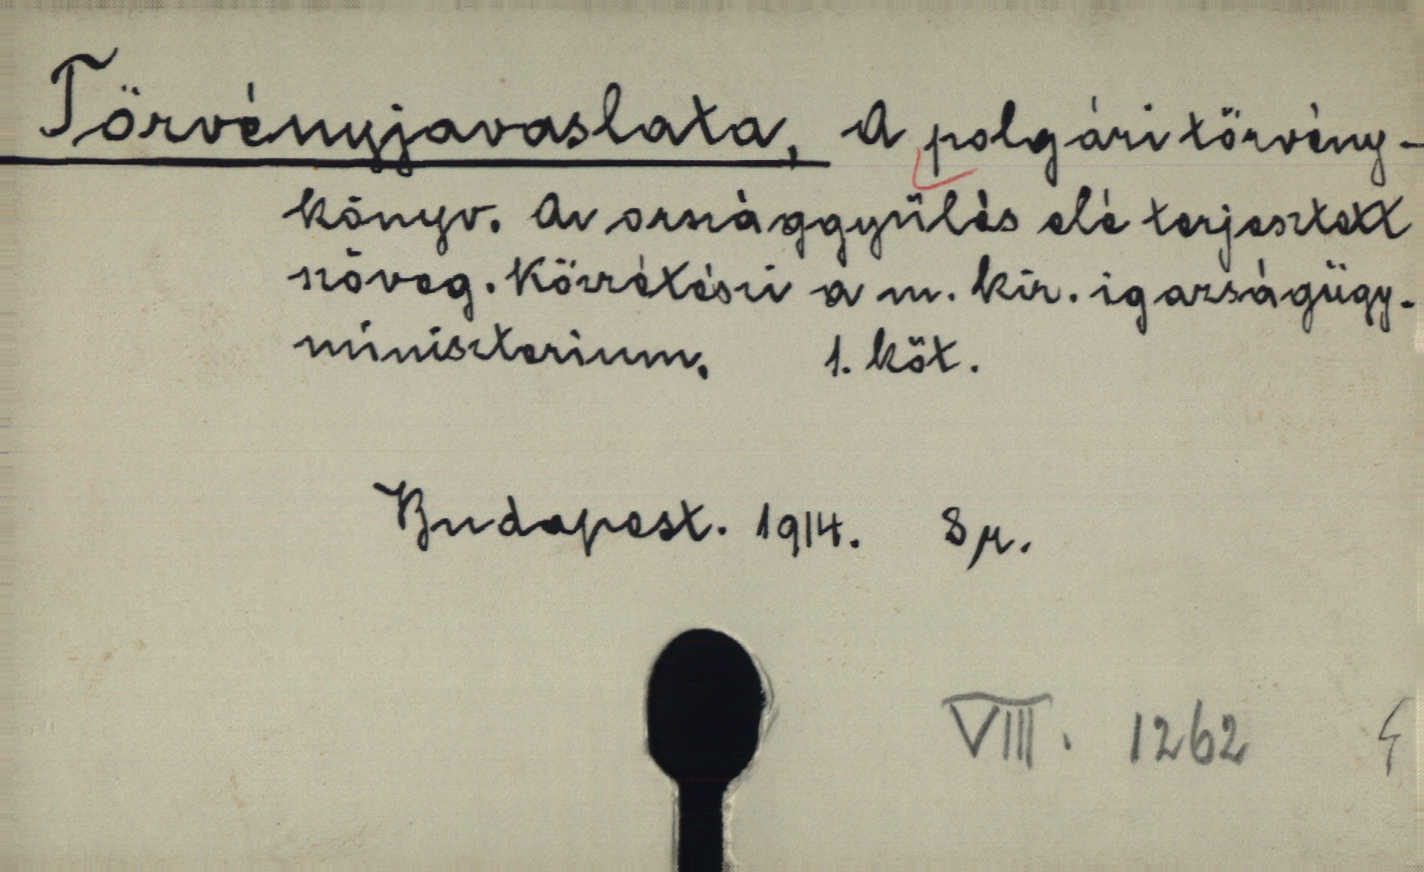 Törvényjavaslata, A polgári törvény-
könyv. Az országgyülés elé terjesztett
szöveg. Közzéteszi a m. kir. igazságügy-
miniszterium. 1. köt.
Budapest. 1914. 8r.
VIII. 1262